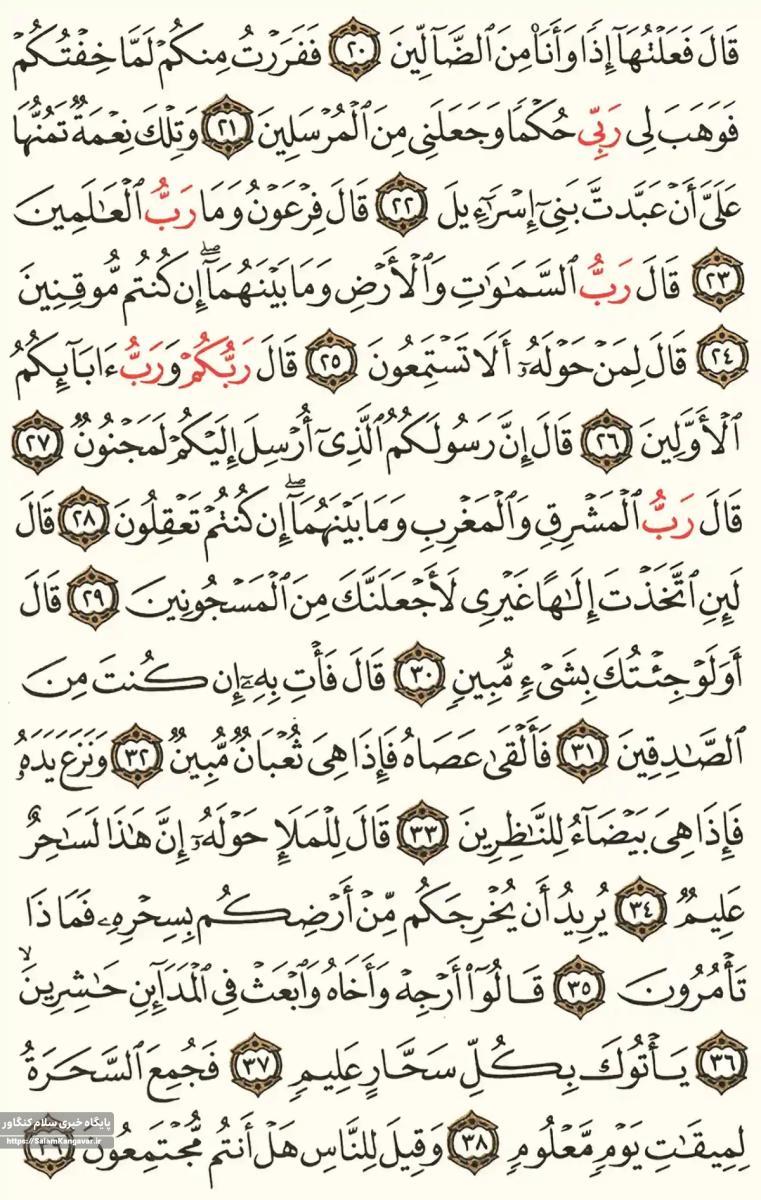 قَالَ فَعَلْتُهَآ إِذًا وَأَنَا۠ مِنَ ٱلضَّآلِّينَ ﴿٢٠﴾ فَفَرَرْتُ مِنكُمْ لَمَّا خِفْتُكُمْ
فَوَهَبَ لِى رَبِّى حُكْمًا وَجَعَلَنِى مِنَ ٱلْمُرْسَلِينَ ﴿٢١﴾ وَتِلْكَ نِعْمَةٌ تَمُنُّهَا
عَلَىَّ أَنْ عَبَّدتَّ بَنِىٓ إِسْرَٰٓءِيلَ ﴿٢٢﴾ قَالَ فِرْعَوْنُ وَمَا رَبُّ ٱلْعَٰلَمِينَ
﴿٢٣﴾ قَالَ رَبُّ ٱلسَّمَٰوَٰتِ وَٱلْأَرْضِ وَمَا بَيْنَهُمَآ ۖ إِن كُنتُم مُّوقِنِينَ
﴿٢٤﴾ قَالَ لِمَنْ حَوْلَهُۥٓ أَلَا تَسْتَمِعُونَ ﴿٢٥﴾ قَالَ رَبُّكُمْ وَرَبُّ ءَابَآئِكُمُ
ٱلْأَوَّلِينَ ﴿٢٦﴾ قَالَ إِنَّ رَسُولَكُمُ ٱلَّذِىٓ أُرْسِلَ إِلَيْكُمْ لَمَجْنُونٌ ﴿٢٧﴾
قَالَ رَبُّ ٱلْمَشْرِقِ وَٱلْمَغْرِبِ وَمَا بَيْنَهُمَآ ۖ إِن كُنتُمْ تَعْقِلُونَ ﴿٢٨﴾ قَالَ
لَئِنِ ٱتَّخَذْتَ إِلَٰهًا غَيْرِى لَأَجْعَلَنَّكَ مِنَ ٱلْمَسْجُونِينَ ﴿٢٩﴾ قَالَ
أَوَلَوْ جِئْتُكَ بِشَىْءٍ مُّبِينٍ ﴿٣٠﴾ قَالَ فَأْتِ بِهِۦٓ إِن كُنتَ مِنَ
ٱلصَّٰدِقِينَ ﴿٣١﴾ فَأَلْقَىٰ عَصَاهُ فَإِذَا هِىَ ثُعْبَانٌ مُّبِينٌ ﴿٣٢﴾ وَنَزَعَ يَدَهُۥ
فَإِذَا هِىَ بَيْضَآءُ لِلنَّٰظِرِينَ ﴿٣٣﴾ قَالَ لِلْمَلَإِ حَوْلَهُۥٓ إِنَّ هَٰذَا لَسَٰحِرٌ
عَلِيمٌ ﴿٣٤﴾ يُرِيدُ أَن يُخْرِجَكُم مِّنْ أَرْضِكُم بِسِحْرِهِۦ فَمَاذَا
تَأْمُرُونَ ﴿٣٥﴾ قَالُوٓا۟ أَرْجِهْ وَأَخَاهُ وَٱبْعَثْ فِى ٱلْمَدَآئِنِ حَٰشِرِينَ ۙ
﴿٣٦﴾ يَأْتُوكَ بِكُلِّ سَحَّارٍ عَلِيمٍ ﴿٣٧﴾ فَجُمِعَ ٱلسَّحَرَةُ
لِمِيقَٰتِ يَوْمٍ مَّعْلُومٍ ﴿٣٨﴾ وَقِيلَ لِلنَّاسِ هَلْ أَنتُم مُّجْتَمِعُونَ ﴿٣٩﴾
پایگاه خبری سلام کنگاور
https://SalamKangavar.ir